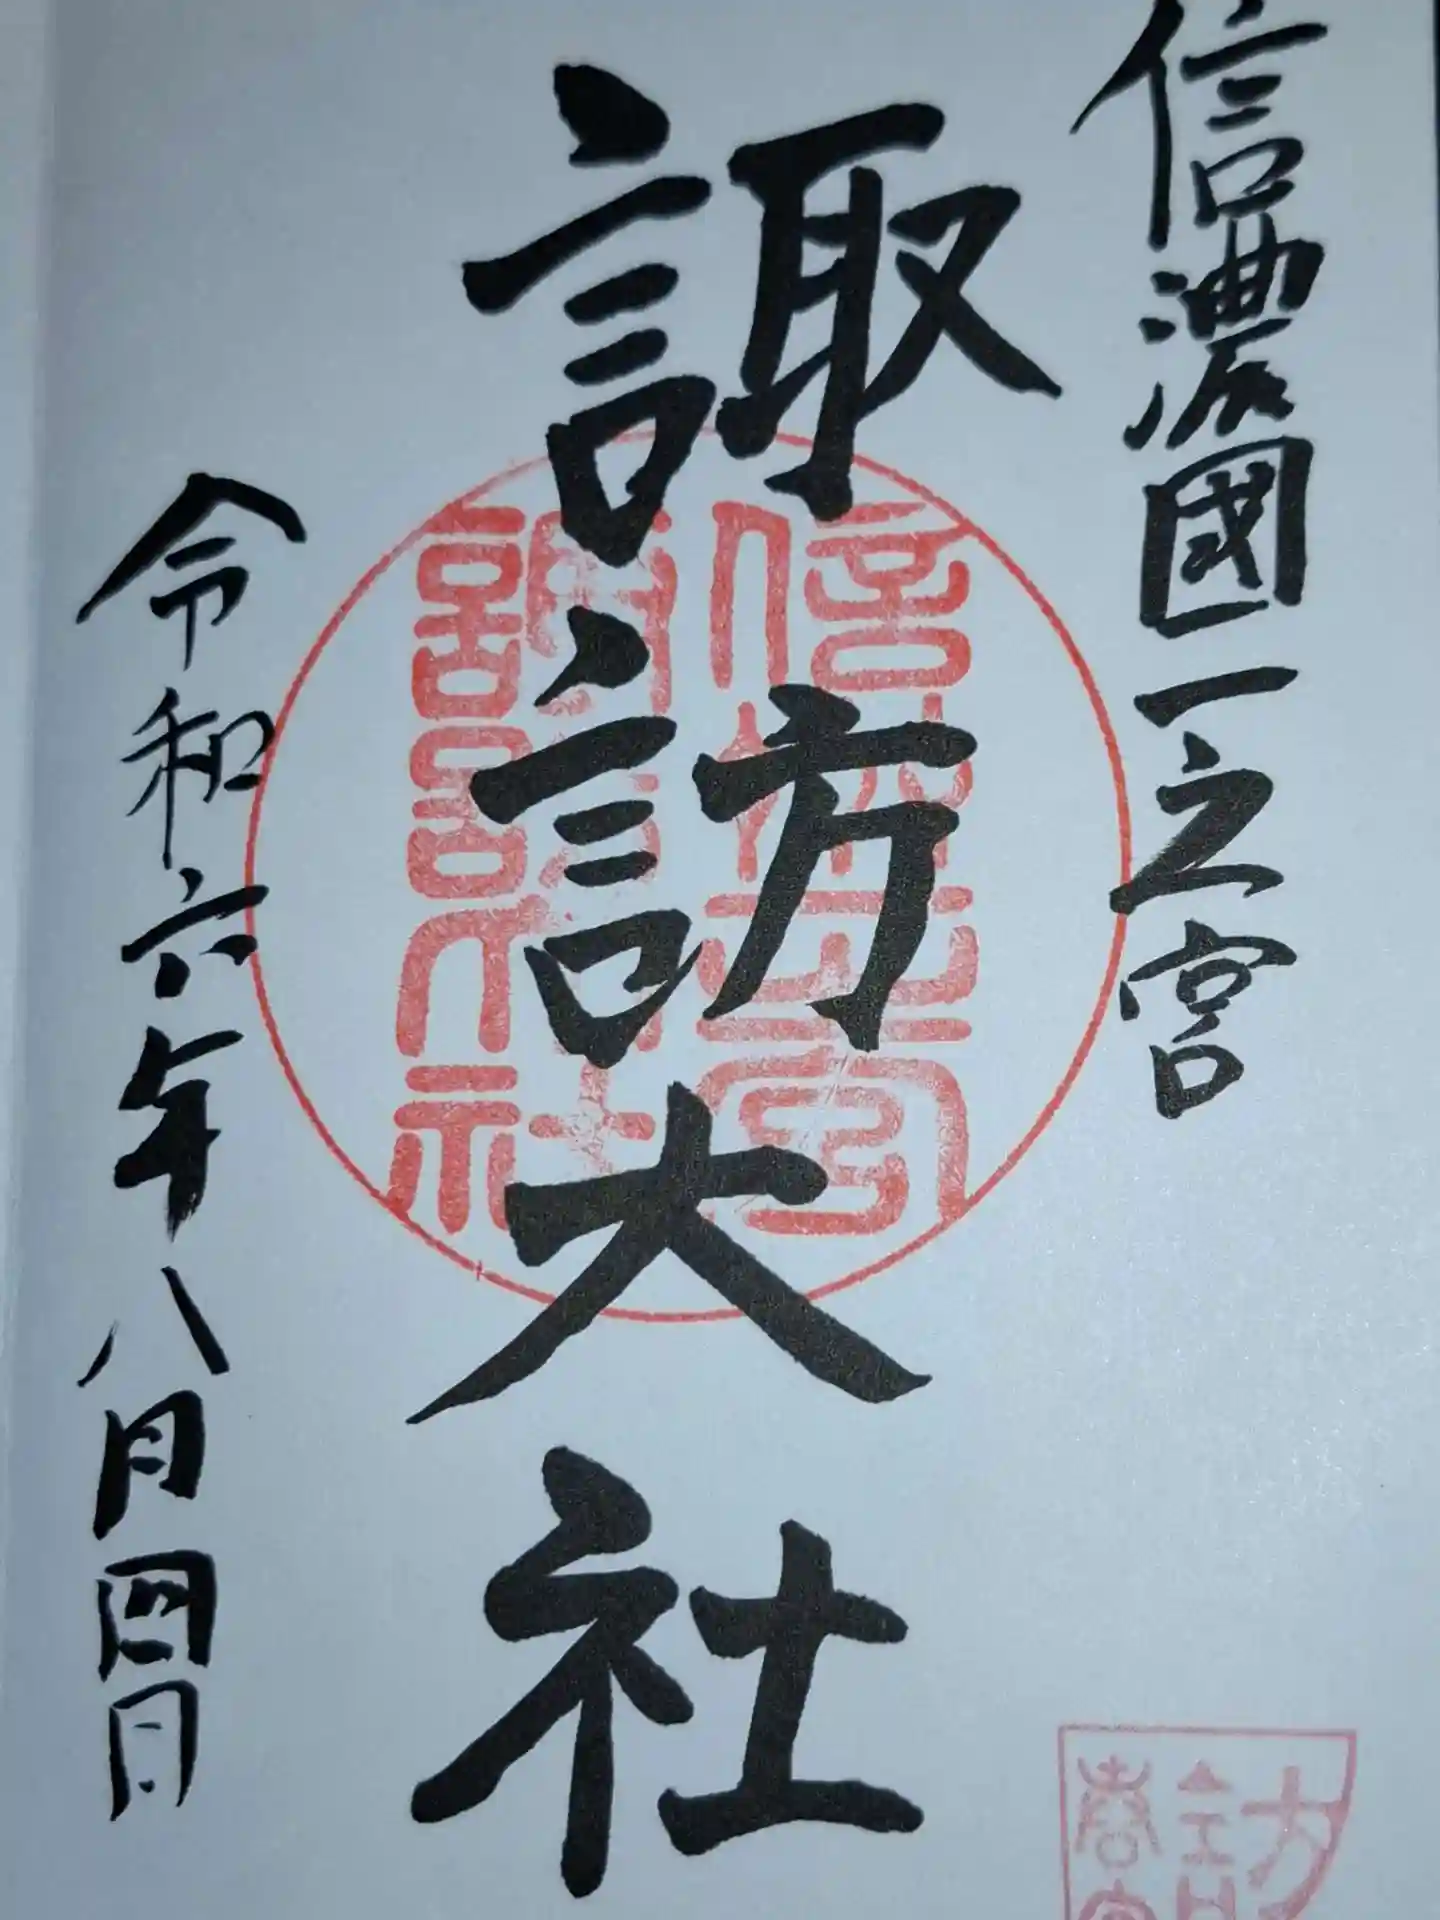 信濃國一之宮
諏訪大社
令和六年八月四日
信州一之宮
諏訪大社